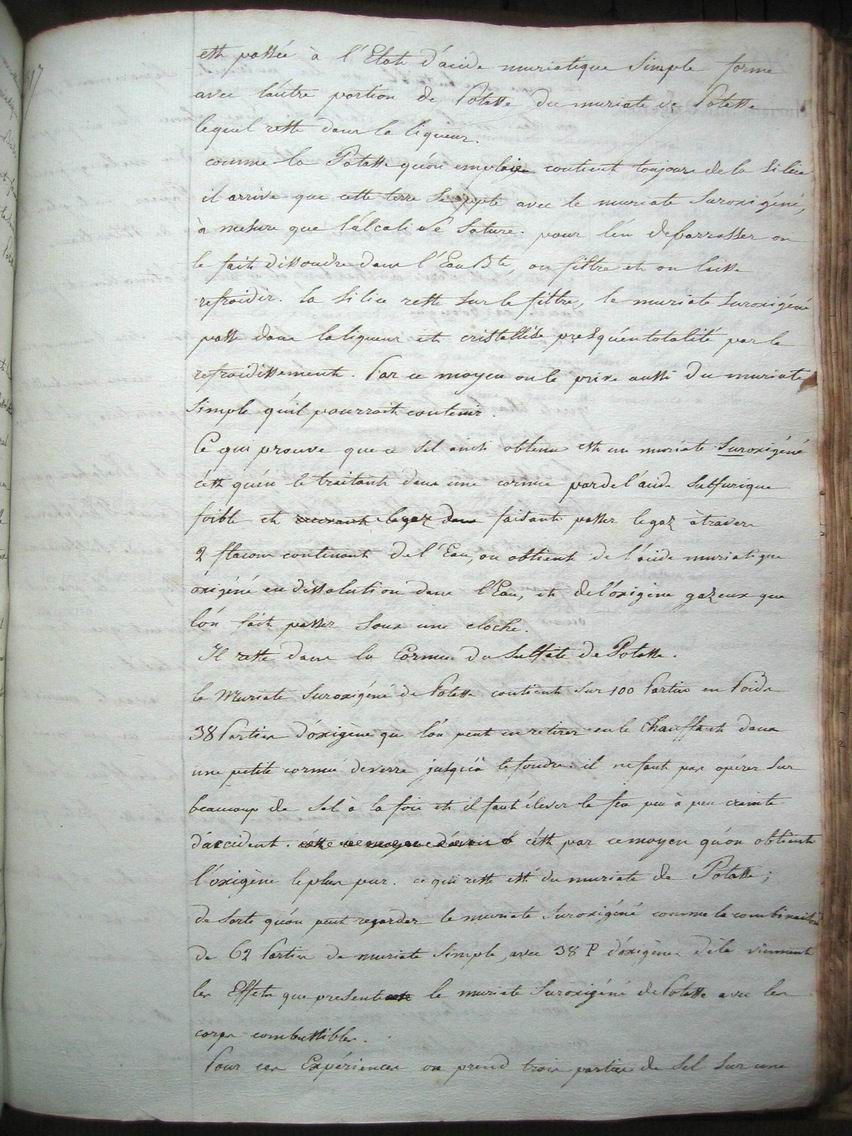 est passée à l'Etat d'acide muriatique simple forme
avec l'autre portion de Potasse du muriate de Potasse
lequel reste dans la liqueur.
comme la Potasse qu'on emploie contient toujours de la silice
il arrive que cette terre se avec le muriate suroxigéné,
à mesure que l'alcali se sature. pour l'en debarrasser on
le fait dissoudre dans l'Eau Bte, on filtre et on laisse
refroidir. la silice reste sur le filtre, le muriate suroxigéné
passe dans la liqueur et cristallise presqu'en totalité par le
refroidissement. Par ce moyen on le prive aussi du muriate
simple qu'il pourrait contenir.
Ce qui prouve que ce sel ainsi obtenu est un muriate suroxigéné
c'est qu'en le traitant dans une cornue par de l'acide sulfurique
foible et recevant le gaz dans faisant passer le gaz àtravers
2 flacons contenant de l'Eau, on obtient de l'acide muriatique
oxigéné en dissolution dans l'Eau, et de l'oxigène gazeux que
l'on fait passer sous une cloche.
Il reste dans la Cornue du Sulfate de Potasse.
le Muriate suroxigéné de Potasse contient sur 100 Parties en Poids
38 Parties d'oxigène que l'on peut en retirer en le chauffant dans
une petite cornue de verre jusqu'à le fondre. il ne faut pas opérer sur
beaucoup de Sel à la fois et il faut élever le feu peu à peu crainte
d'accident. c'est par ce moyen qu'on obtient
l'oxigène le plus pur. ce qui reste est du muriate de Potasse;
de sorte qu'on peut regarder le muriate suroxigéné comme la combinaison
de 62 Parties de muriate simple, avec 38 P d'oxigène de là viennent
les Effets que presente le muriate suroxigéné de Potasse avec les
corps combustibles.
Pour ces Expériences on prend trois parties de Sel sur une